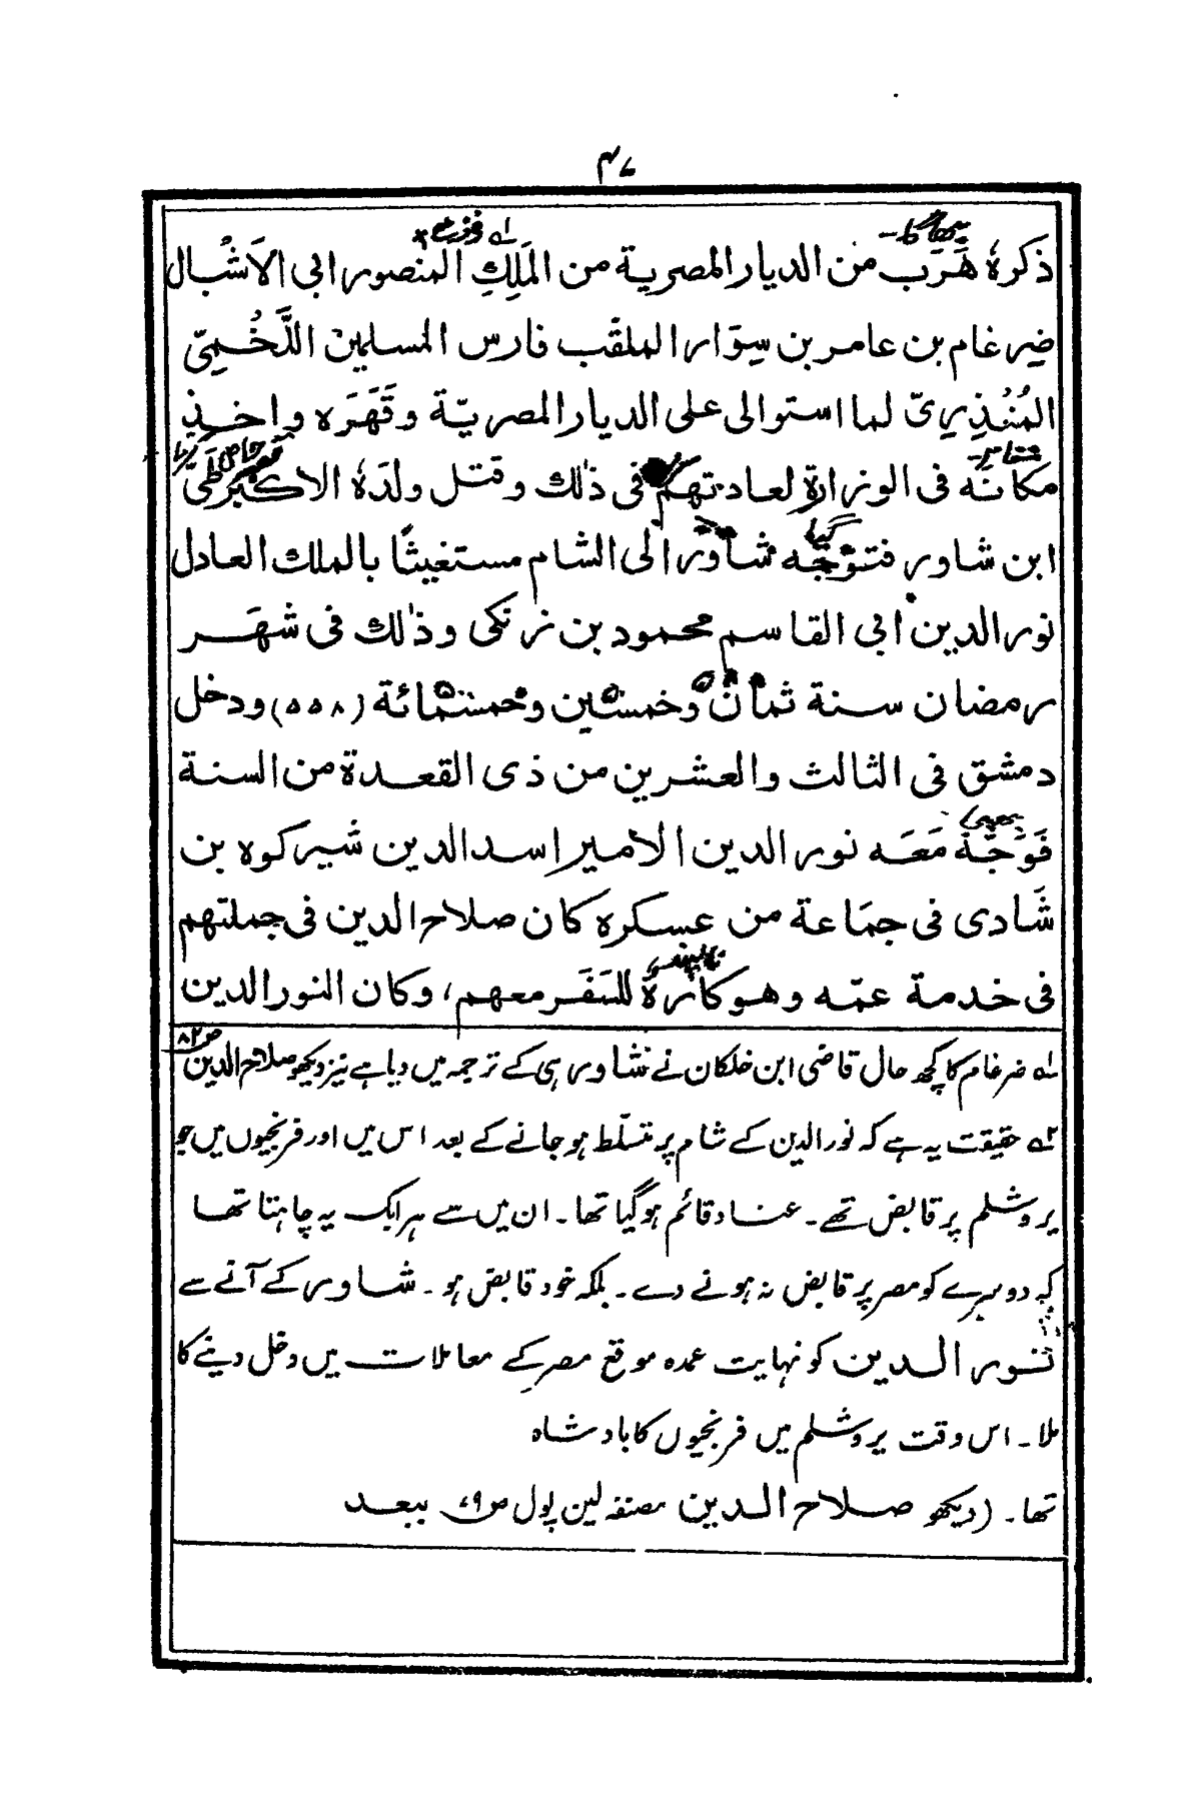 ۴۷
ذكرهٗ هَرَب من الديار المصرية من المَلِكِ المنصور ابی الاَشْبال
ضِرغام بن عامر بن سِوَار الملقّب فارس المسلمين اللَّخْمِیّ
المُنْذِرِیّ لما استوالی علی الديار المصريّة وقَهَرَه واخذ
مكانَه فی الوزارة لعادتهم فی ذٰلك وقتل ولدَهٗ الاكبر طَیّ
ابن شاور فتوجّه شاور الی الشام مستغيثًا بالملك العادل
نور الدين ابی القاسم محمود بن زنكی وذٰلك فی شهَر
رمضان سنة ثمان وخمسين وخمسمائة (۵۵۸) ودخل
دمشق فی الثالث والعشرين من ذی القعدة من السنة
فَوَجَّهَ مَعَه نور الدين الامير اسد الدين شيركوه بن
شَادی فی جمَاعة من عسكره كان صلاح الدين فی جملتهم
فی خدمة عمّه وهو كارهٌ للسَفَر معهم، وكان النور الدين
لہ ضرغام کا کچھ حال قاضی ابن خلکان نے شاور ہی کے ترجمہ میں دیا ہے نیز دیکھو صلاح الدین ص۸۲
۲ہ حقیقت یہ ہے کہ نور الدین کے شام پر متسلّط ہو جانے کے بعد اس میں اور فرنجیوں میں جو
یروشلم پر قابض تھے۔ عناد قائم ہوگیا تھا۔ ان میں سے ہر ایک یہ چاہتا تھا
کہ دوسرے کو مصر پر قابض نہ ہونے دے۔ بلکہ خود قابض ہو۔ شاور کے آنے سے
نور الدین کو نہایت عمدہ موقع مصر کے معاملات میں دخل دینے کا
ملا۔ اس وقت یروشلم میں فرنجیوں کا بادشاہ
تھا۔ (دیکھو صلاح الدین مصنفہ لین پول ص۷۹ ببعد